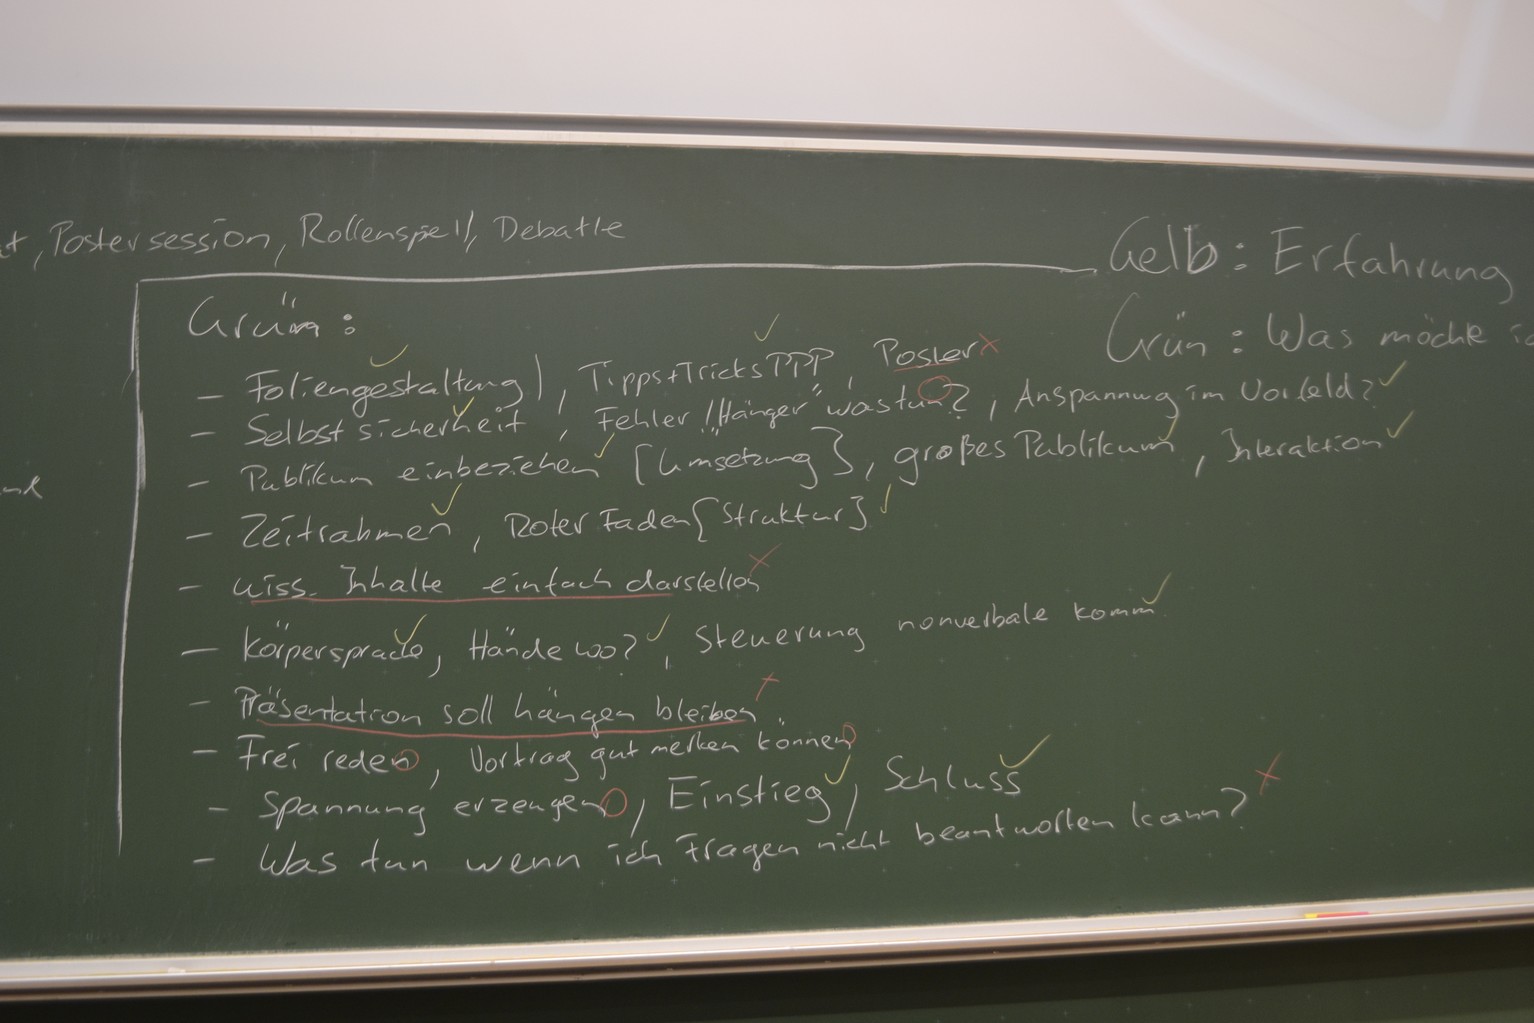 , Postersession, Rollenspiel, Debatte
Gelb: Erfahrung
Grün: Was möchte
Grün:
- Foliengestaltung, Tipps+Tricks PPP, Poster
- Selbstsicherheit, Fehler/"Hänger" was tun?, Anspannung im Vorfeld?
- Publikum einbeziehen [Umsetzung], großes Publikum, Interaktion
- Zeitrahmen, Roter Faden [Struktur]
- wiss. Inhalte einfach darstellen
- Körpersprache, Hände wo?, Steuerung nonverbale Komm.
- Präsentation soll hängen bleiben
- Frei reden, Vortrag gut merken können
- Spannung erzeugen, Einstieg, Schluss
- Was tun wenn ich Fragen nicht beantworten kann?